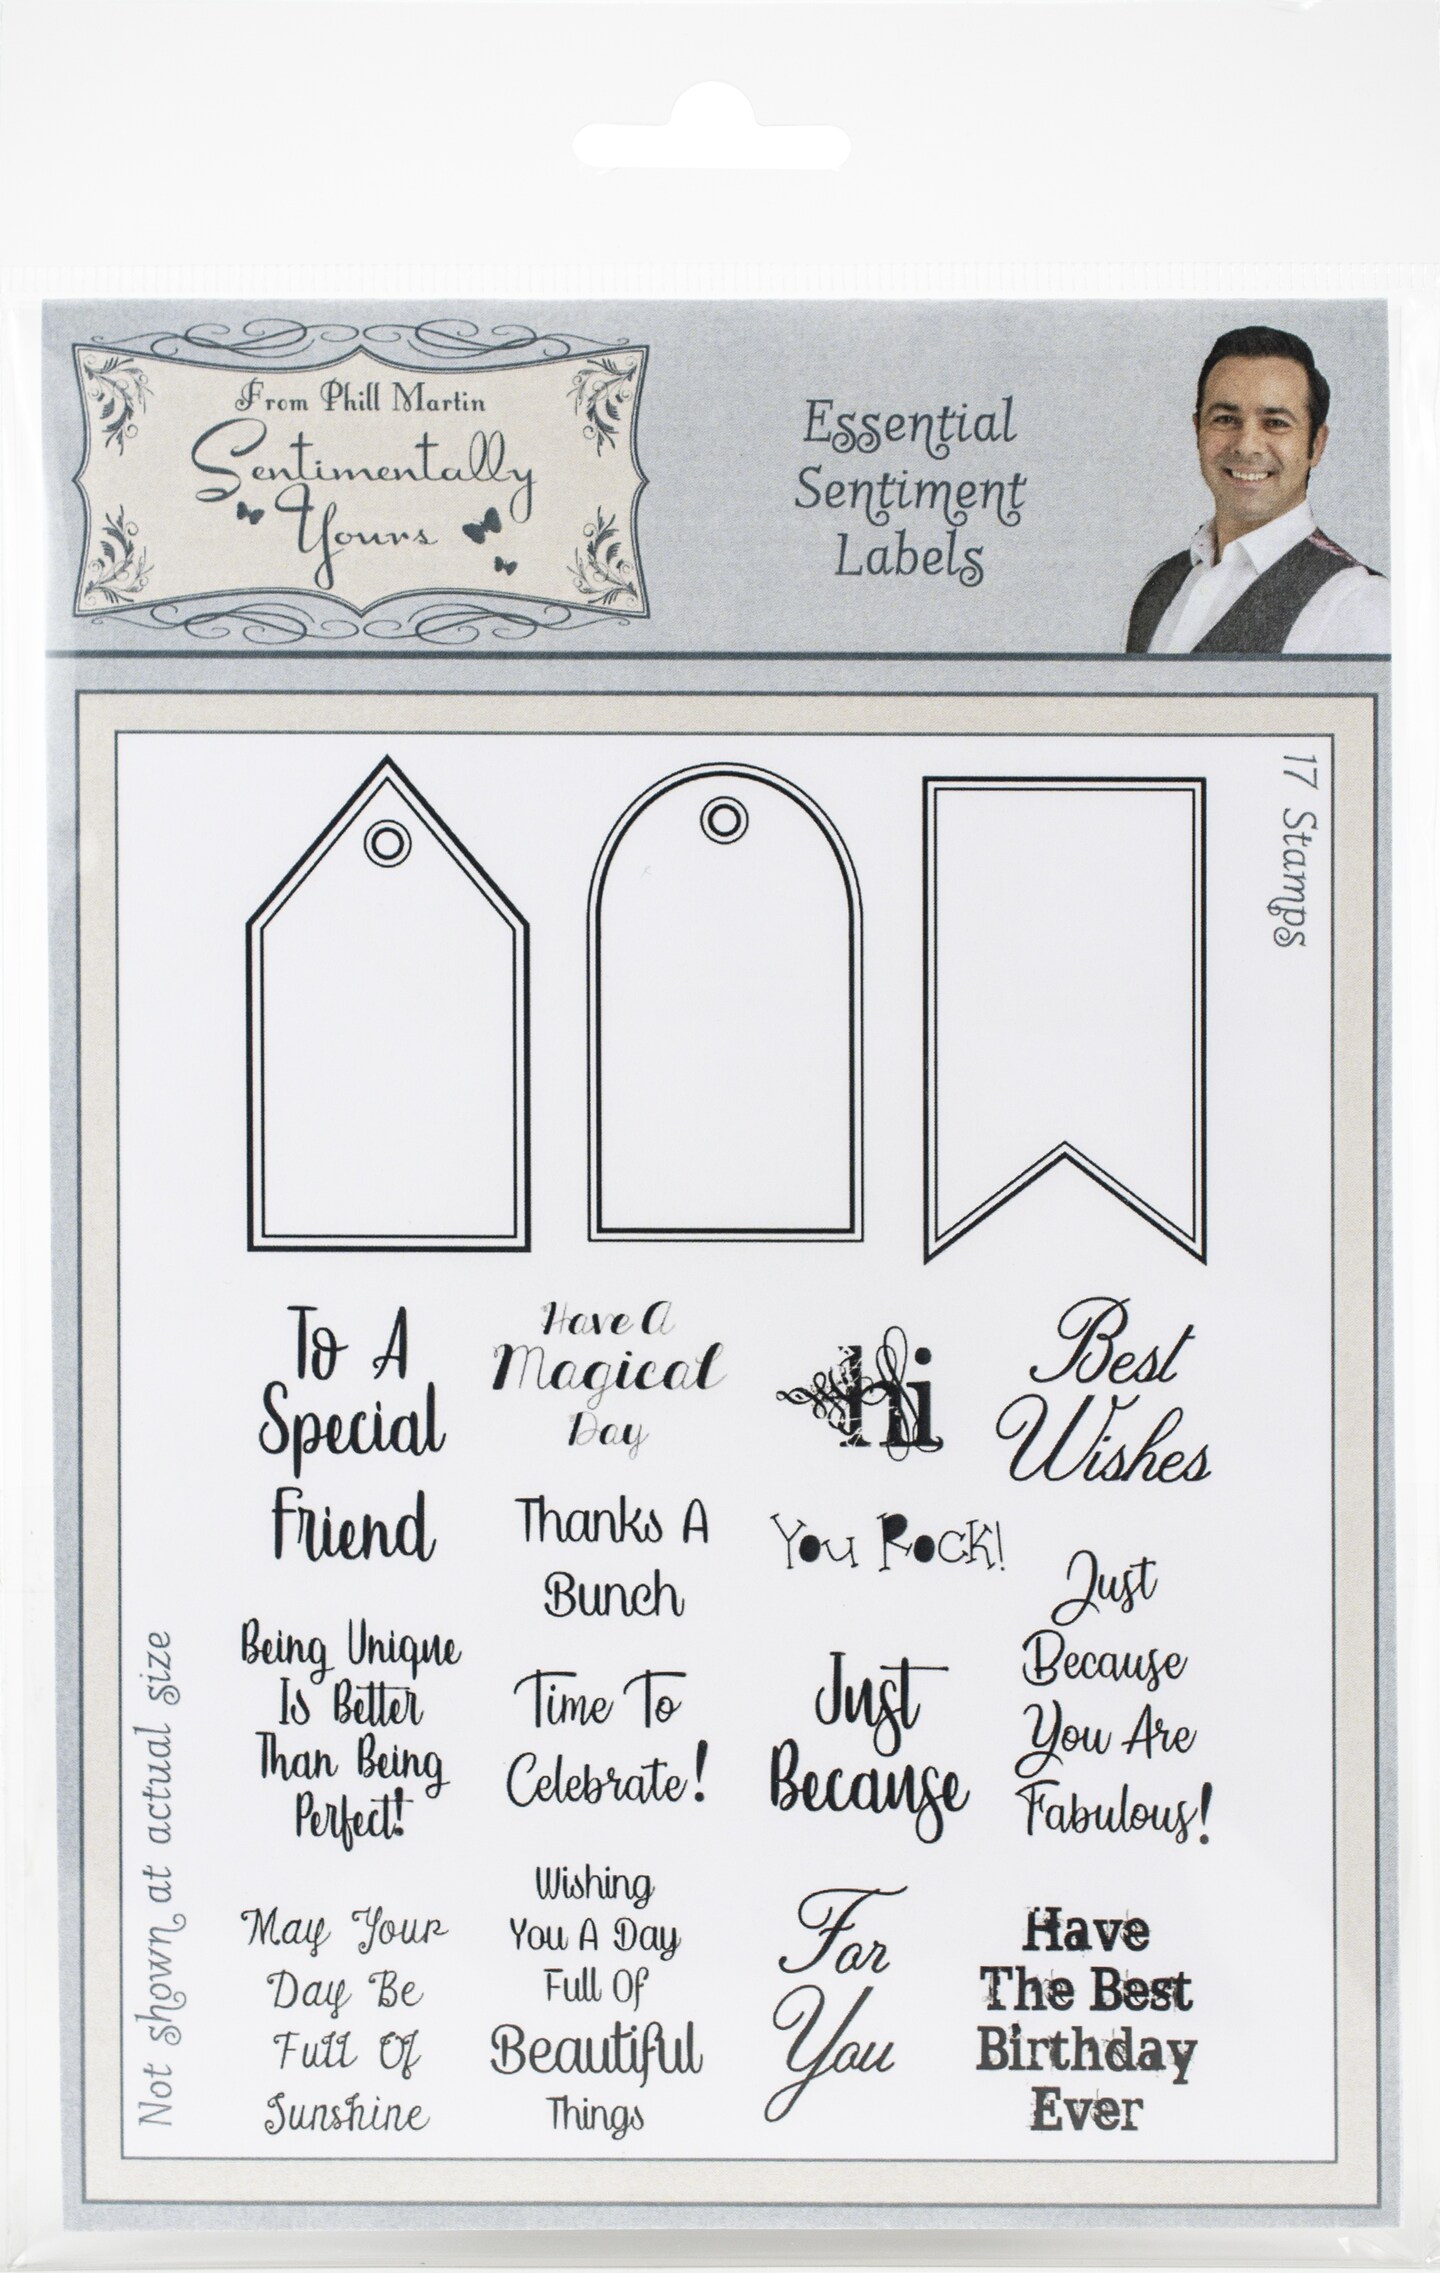 From Phill Martin
Sentimentally
Yours
Essential
Sentiment
Labels
17 Stamps
To A
Special
Friend
Have A
Magical
Day
hi
Best
Wishes
Thanks A
Bunch
You Rock!
Just
Because
You Are
Fabulous!
Being Unique
Is Better
Than Being
Perfect!
Time To
Celebrate!
Just
Because
May Your
Day Be
Full Of
Sunshine
Wishing
You A Day
Full Of
Beautiful
Things
For
You
Have
The Best
Birthday
Ever
Not shown at actual size